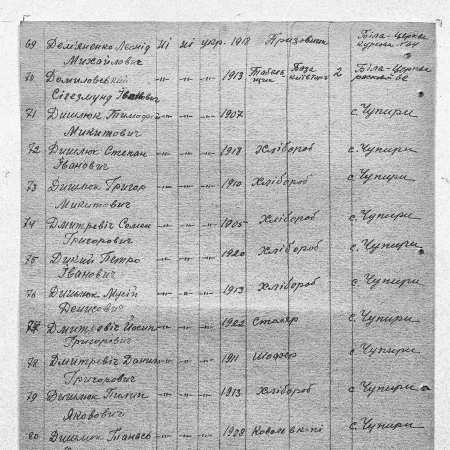 69 Дем'яненко Леонід ні ні укр. 1918 Призовник Біла-Церква
Михайлович
70 Домиловський -"- -"- -"- 1913 2 Біла-Церква
Сігезмунд Іванович
71 Дишлюк Тимофій -"- -"- -"- 1907 с. Чупири
Микитович
72 Дишлюк Степан -"- -"- -"- 1918 Хлібороб с. Чупири
Іванович
73 Дишлюк Григор -"- -"- -"- 1910 Хлібороб с. Чупири
Микитович
74 Дмитревіч Семен -"- -"- -"- 1905 Хлібороб с. Чупири
Григорович
75 Дикий Петро -"- -"- -"- 1920 Хлібороб с. Чупири
Іванович
76 Дишлюк Мусій -"- -"- -"- 1913 Хлібороб с. Чупири
Денисович
77 Дмитревіч Йосип -"- -"- -"- 1922 Столяр с. Чупири
Григорович
78 Дмитревіч Данило -"- -"- -"- 1911 Шофер с. Чупири
Григорович
79 Дишлюк Пилип -"- -"- -"- 1913 Хлібороб с. Чупири
Якович
80 Дишлюк Танась -"- -"- -"- 1908 с. Чупири